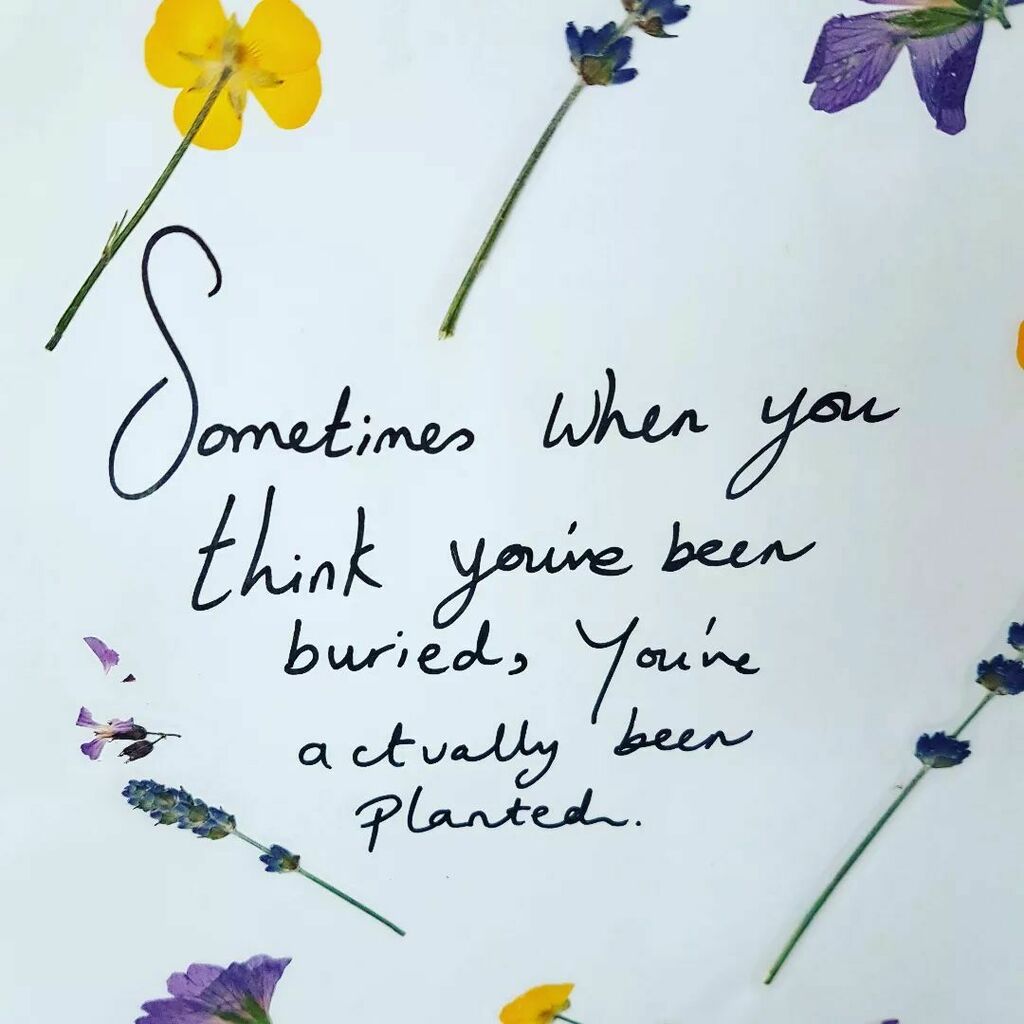 Sometimes when you
think you've been
buried, You've
actually been
planted.